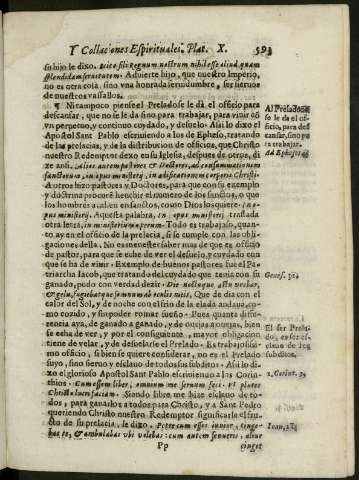 Y Collaciones Espirituales. Plat. X. 593
su hijo le dixo.
Aduierte hijo, que nuestro Imperio,
no es otra cosa, sino vna honrada seruidumbre, ser sieruos
de nuestros vassallos.
¶ Ni tampoco piense el Prelado se le dà el officio para
descansar, que no le le da sino para trabajar, para viuir cõ
vn perpetuo, y continuo cuydado, y desuelo. Assi lo dixo el
Apostol Sant Pablo escriuiendo a los de Epheso, tratando
de las prelacias, y de la distribucion de officios, que Christo
nuestro Redemptor dexo en su Iglesia, despues de otras, di
ze ansi. Alios autem pastores & doctores, ad consummationem
sanctorum, in opus ministerij, in ædificationem corporis Christi.
A otros hizo pastores y Doctores, para que con su exemplo
y doctrina procurẽ henchir el numero de los sanctos, o que
los hombres acaben en sanctos, como Dios los quiere: in o-
pus ministerij. Aquesta palabra, in opus ministerij traslada
otra letra, in ministerium operum. Todo es trabajo, quan-
to ay en el officio de la prelacia, si se cumple con las obli-
gaciones della. No es menester saber mas de que es officio
de pastor, para que se eche de ver el desuelo, y cuydado con
que se ha de viuir. Exemplo de buenos pastores fue el Pa-
triarcha Iacob, que tratando del cuydado que tenia con su
ganado, pudo con verdad dezir. Die noctuque æstu vrebar,
& gelu, fugiebatque somnus ab oculis meis. Que de dia con el
calor del Sol, y de noche con el frio de la elada andaua, co-
mo cozido, y sin poder tomar sueño. Pues quanta diffe-
rencia aya, de ganado a ganado, y de ouejas a ouejas, bien
se echa de ver, y por el consiguiente, mayor obligacion
tiene de velar, y de desuelarse el Prelado. Es trabajosissi-
mo officio, si bien se quiere considerar, no es el Prelado
suyo, sino sieruo y esclauo de todos sus subditos. Assi lo di-
xo el glorioso Apostol Sant Pablo escriuiendo a los Corin-
thios. Cum essem liber, omnium me seruum feci. Vt plures
Christo lucrifaciam. Siendo libre, me hize esclauo de to-
dos, para ganarlos a todos para Christo, y a Sant Pedro
queriendo Christo nuestro Redemptor significarle el fru-
cto de su prelacia, le dixo. Petre cum esses iunior, cinge-
bas te, & ambulabas vbi volebas: cum autem senueris, alius
Pp cinget
Al Prelado no
se le da el of-
ficio, para des
cansar, sino pa
ra trabajar.
Ad Ephesios
Genes. 31.
El ser Prela-
do, es ser es-
clauo de los
subditos.
1. Corint. 9.
Ioan. 21.